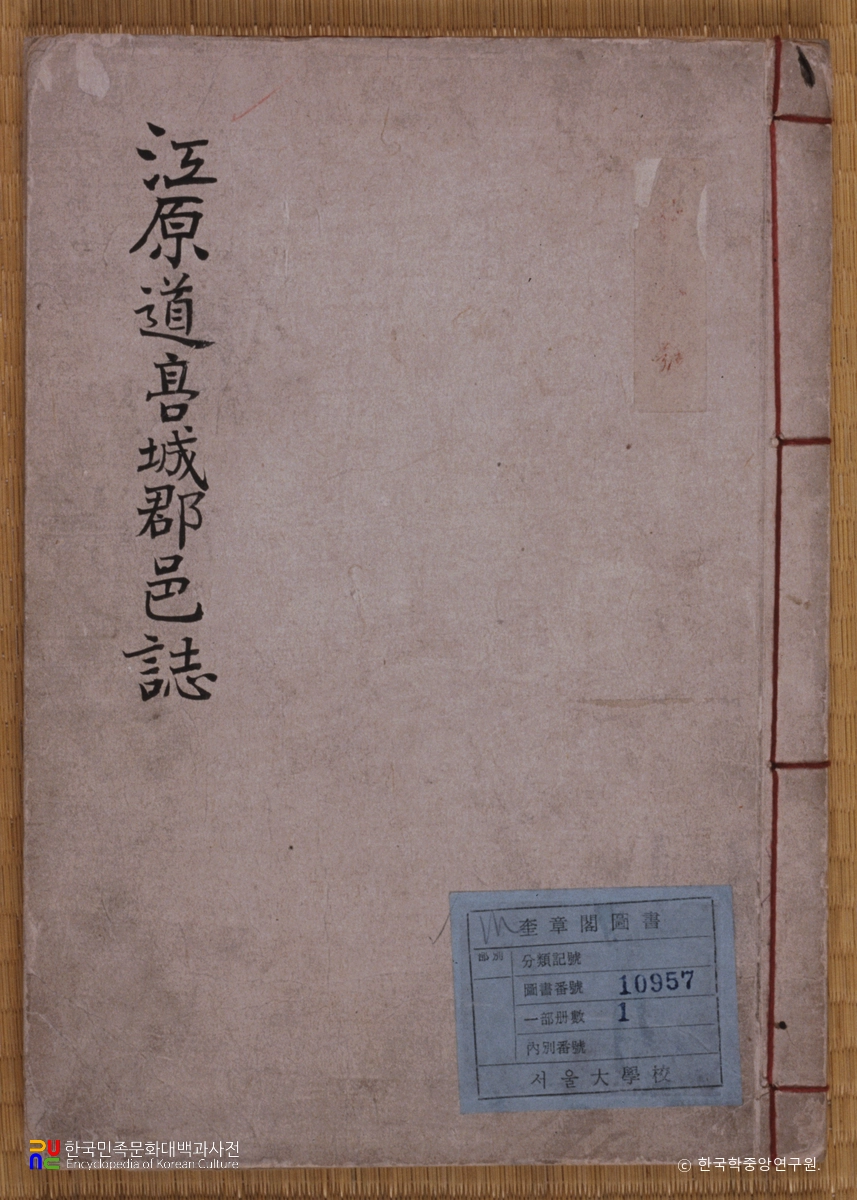 江原道高城郡邑誌
奎章閣圖書
部別
分類記號
圖書番號 10957
一部册數 1
內別番號
서울大學校
한국민족문화대백과사전
Encyclopedia of Korean Culture
© 한국학중앙연구원.